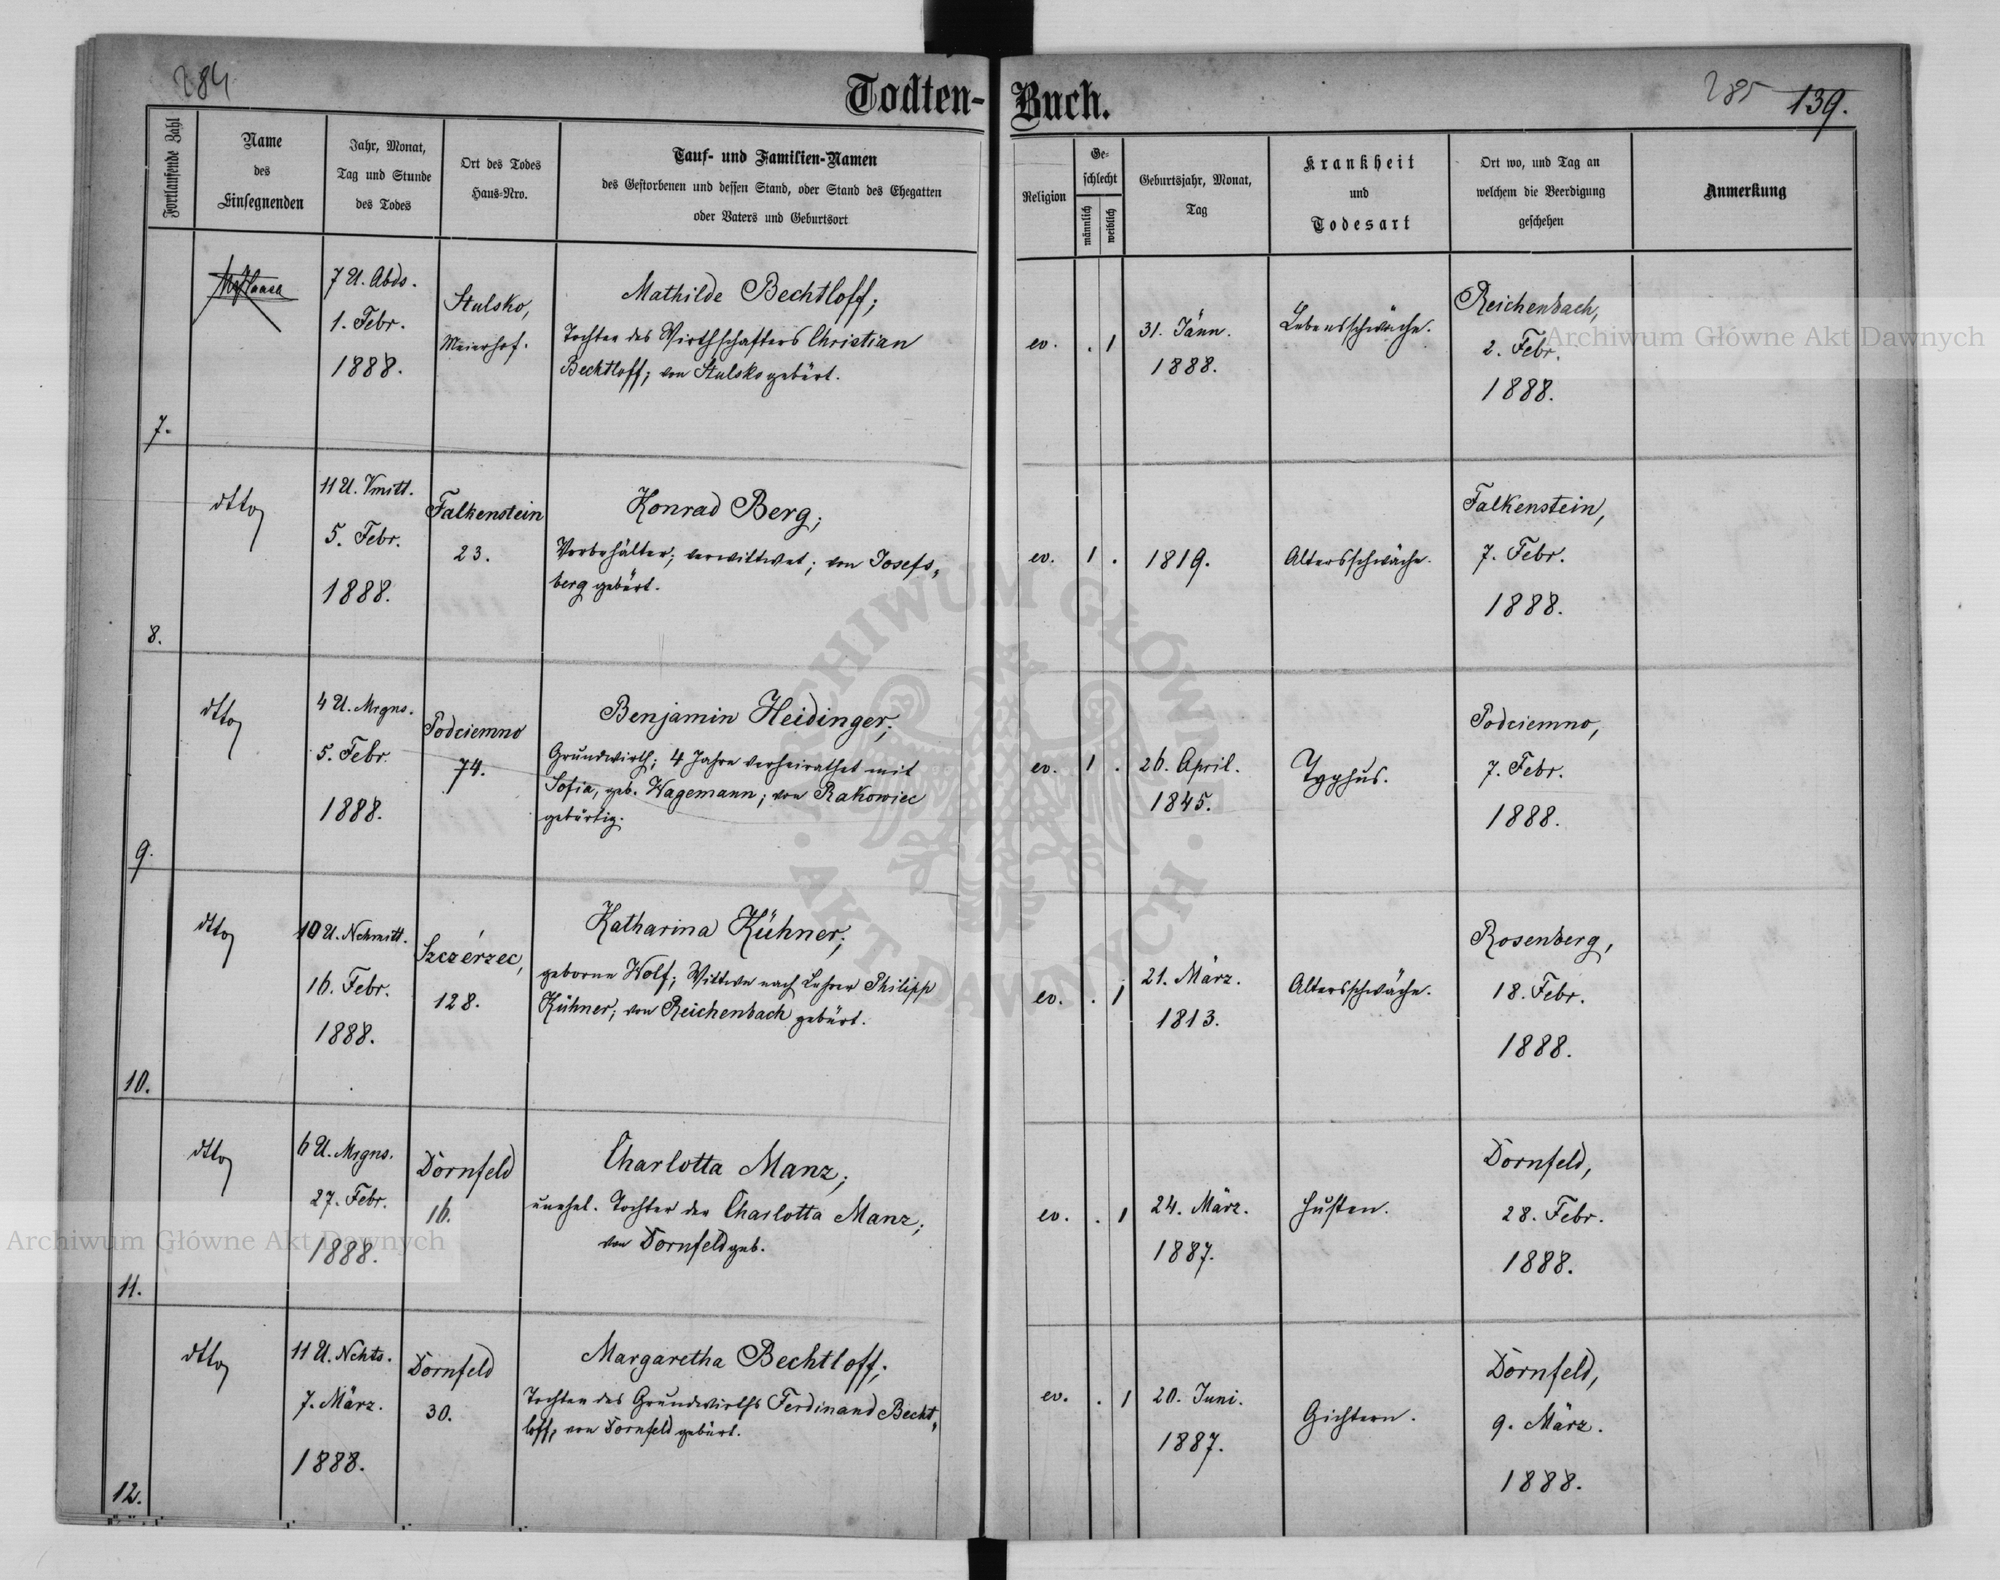 284
Todten-Buch.
285 139.
Fortlaufende Zahl
Name
des
Einsegnenden
Jahr, Monat,
Tag und Stunde
des Todes
Ort des Todes
Haus-Nro.
Tauf- und Familien-Namen
des Gestorbenen und dessen Stand, oder Stand des Ehegatten
oder Vaters und Geburtsort
Religion
Ge-
schlecht
männlich
weiblich
Geburtsjahr, Monat,
Tag
Krankheit
und
Todesart
Ort wo, und Tag an
welchem die Beerdigung
geschehen
Anmerkung
7.
7 U. Abds.
1. Febr.
1888.
Stulsko,
Meierhof.
Mathilde Bechtloff;
Tochter des Wirthschafters Christian
Bechtloff; von Stulsko gebürt.
ev. . 1
31. Jänn.
1888.
Lebensschwäche.
Reichenbach,
2. Febr.
1888.
8.
dtto
11 U. Vmitt.
5. Febr.
1888.
Falkenstein
23.
Konrad Berg;
Vorbehälter; verwittwet; von Josefs-
berg gebürt.
ev. 1 .
1819.
Altersschwäche.
Falkenstein,
7. Febr.
1888.
9.
dtto
4 U. Mrgns.
5. Febr.
1888.
Podciemno
74.
Benjamin Heidinger;
Grundwirth; 4 Jahre verheirathet mit
Sofia, geb. Wagemann; von Rakowiec
gebürtig.
ev. 1 .
26. April.
1845.
Typhus.
Podciemno,
7. Febr.
1888.
10.
dtto
10 U. Nchmitt.
16. Febr.
1888.
Szczérzec,
128.
Katharina Kühner;
geborne Wolf; Wittwe nach Lehrer Philipp
Kühner; von Reichenbach gebürt.
ev. . 1
21. März.
1813.
Altersschwäche.
Rosenberg,
18. Febr.
1888.
11.
dtto
6 U. Mrgns.
27. Febr.
1888.
Dornfeld
16.
Charlotta Manz;
unehel. Tochter der Charlotta Manz;
von Dornfeld geb.
ev. . 1
24. März.
1887.
Husten.
Dornfeld,
28. Febr.
1888.
12.
dtto
11 U. Nchts.
7. März.
1888.
Dornfeld
30.
Margaretha Bechtloff;
Tochter des Grundwirths Ferdinand Becht-
loff, von Dornfeld gebürt.
ev. . 1
20. Juni.
1887.
Gichtern.
Dornfeld,
9. März.
1888.
Archiwum Główne Akt Dawnych
Archiwum Główne Akt Dawnych
ARCHIWUM GŁÓWNE · AKT DAWNYCH ·